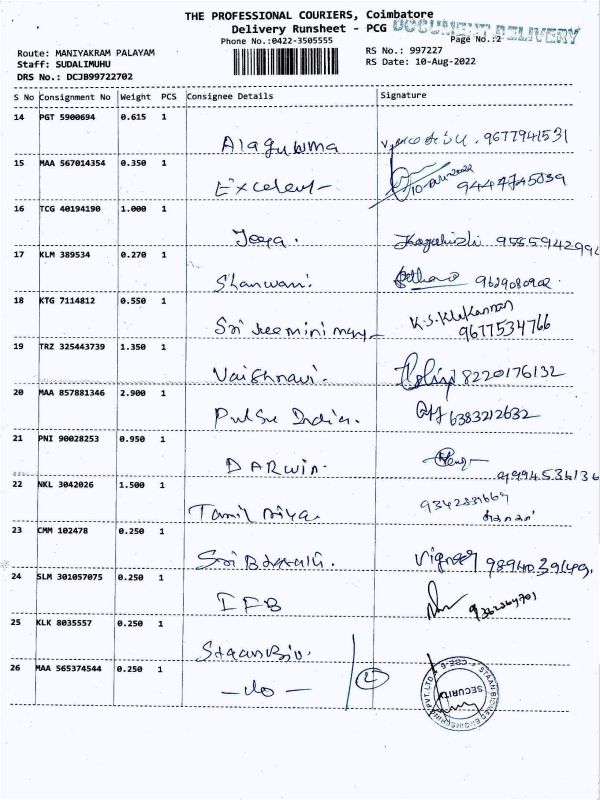 THE PROFESSIONAL COURIERS, Coimbatore
Delivery Runsheet - PCG DOCUMENT DELIVERY
Phone No.:0422-3505555 Page No.:2
Route: MANIYAKRAM PALAYAM RS No.: 997227
Staff: SUDALIMUHU RS Date: 10-Aug-2022
DRS No.: DCJB99722702
S No Consignment No Weight PCS Consignee Details Signature
14 PGT 5900694 0.615 1 9677941531
15 MAA 567014354 0.350 1
16 TCG 40194190 1.000 1 Jeeya.
17 KLM 389534 0.270 1 Shanwani. 9629080902
18 KTG 7114812 0.550 1 9677534766
19 TRZ 325443739 1.350 1 Vaishnavi. 8220176132
20 MAA 857881346 2.900 1 Pulse India. 6383212632
21 PNI 90028253 0.950 1 DARWin. 9994536136
22 NKL 3042026 1.500 1
23 CMM 102478 0.250 1
24 SLM 301057075 0.250 1 IFB
25 KLK 8035557 0.250 1 StaanBio.
26 MAA 565374544 0.250 1 -do- 2
SECURITY